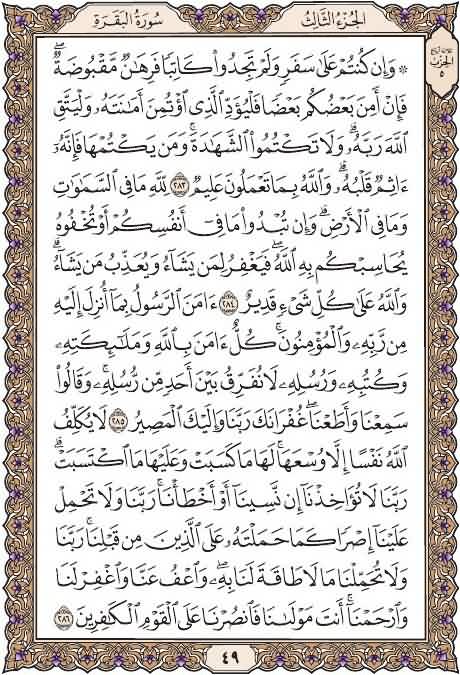 الجزء الثالث
سورة البقرة
ثلاثة أرباع
الحزب
٥
۞ وَإِن كُنتُمْ عَلَىٰ سَفَرٍ وَلَمْ تَجِدُوا۟ كَاتِبًا فَرِهَـٰنٌ مَّقْبُوضَةٌ ۖ
فَإِنْ أَمِنَ بَعْضُكُم بَعْضًا فَلْيُؤَدِّ ٱلَّذِى ٱؤْتُمِنَ أَمَـٰنَتَهُۥ وَلْيَتَّقِ
ٱللَّهَ رَبَّهُۥ ۗ وَلَا تَكْتُمُوا۟ ٱلشَّهَـٰدَةَ ۚ وَمَن يَكْتُمْهَا فَإِنَّهُۥٓ
ءَاثِمٌ قَلْبُهُۥ ۗ وَٱللَّهُ بِمَا تَعْمَلُونَ عَلِيمٌ ٢٨٣ لِّلَّهِ مَا فِى ٱلسَّمَـٰوَٰتِ
وَمَا فِى ٱلْأَرْضِ ۗ وَإِن تُبْدُوا۟ مَا فِىٓ أَنفُسِكُمْ أَوْ تُخْفُوهُ
يُحَاسِبْكُم بِهِ ٱللَّهُ ۖ فَيَغْفِرُ لِمَن يَشَآءُ وَيُعَذِّبُ مَن يَشَآءُ ۗ
وَٱللَّهُ عَلَىٰ كُلِّ شَىْءٍ قَدِيرٌ ٢٨٤ ءَامَنَ ٱلرَّسُولُ بِمَآ أُنزِلَ إِلَيْهِ
مِن رَّبِّهِۦ وَٱلْمُؤْمِنُونَ ۚ كُلٌّ ءَامَنَ بِٱللَّهِ وَمَلَـٰٓئِكَتِهِۦ
وَكُتُبِهِۦ وَرُسُلِهِۦ لَا نُفَرِّقُ بَيْنَ أَحَدٍ مِّن رُّسُلِهِۦ ۚ وَقَالُوا۟
سَمِعْنَا وَأَطَعْنَا ۖ غُفْرَانَكَ رَبَّنَا وَإِلَيْكَ ٱلْمَصِيرُ ٢٨٥ لَا يُكَلِّفُ
ٱللَّهُ نَفْسًا إِلَّا وُسْعَهَا ۚ لَهَا مَا كَسَبَتْ وَعَلَيْهَا مَا ٱكْتَسَبَتْ ۗ
رَبَّنَا لَا تُؤَاخِذْنَآ إِن نَّسِينَآ أَوْ أَخْطَأْنَا ۚ رَبَّنَا وَلَا تَحْمِلْ
عَلَيْنَآ إِصْرًا كَمَا حَمَلْتَهُۥ عَلَى ٱلَّذِينَ مِن قَبْلِنَا ۚ رَبَّنَا
وَلَا تُحَمِّلْنَا مَا لَا طَاقَةَ لَنَا بِهِۦ ۖ وَٱعْفُ عَنَّا وَٱغْفِرْ لَنَا
وَٱرْحَمْنَآ ۚ أَنتَ مَوْلَىٰنَا فَٱنصُرْنَا عَلَى ٱلْقَوْمِ ٱلْكَـٰفِرِينَ ٢٨٦
٤٩